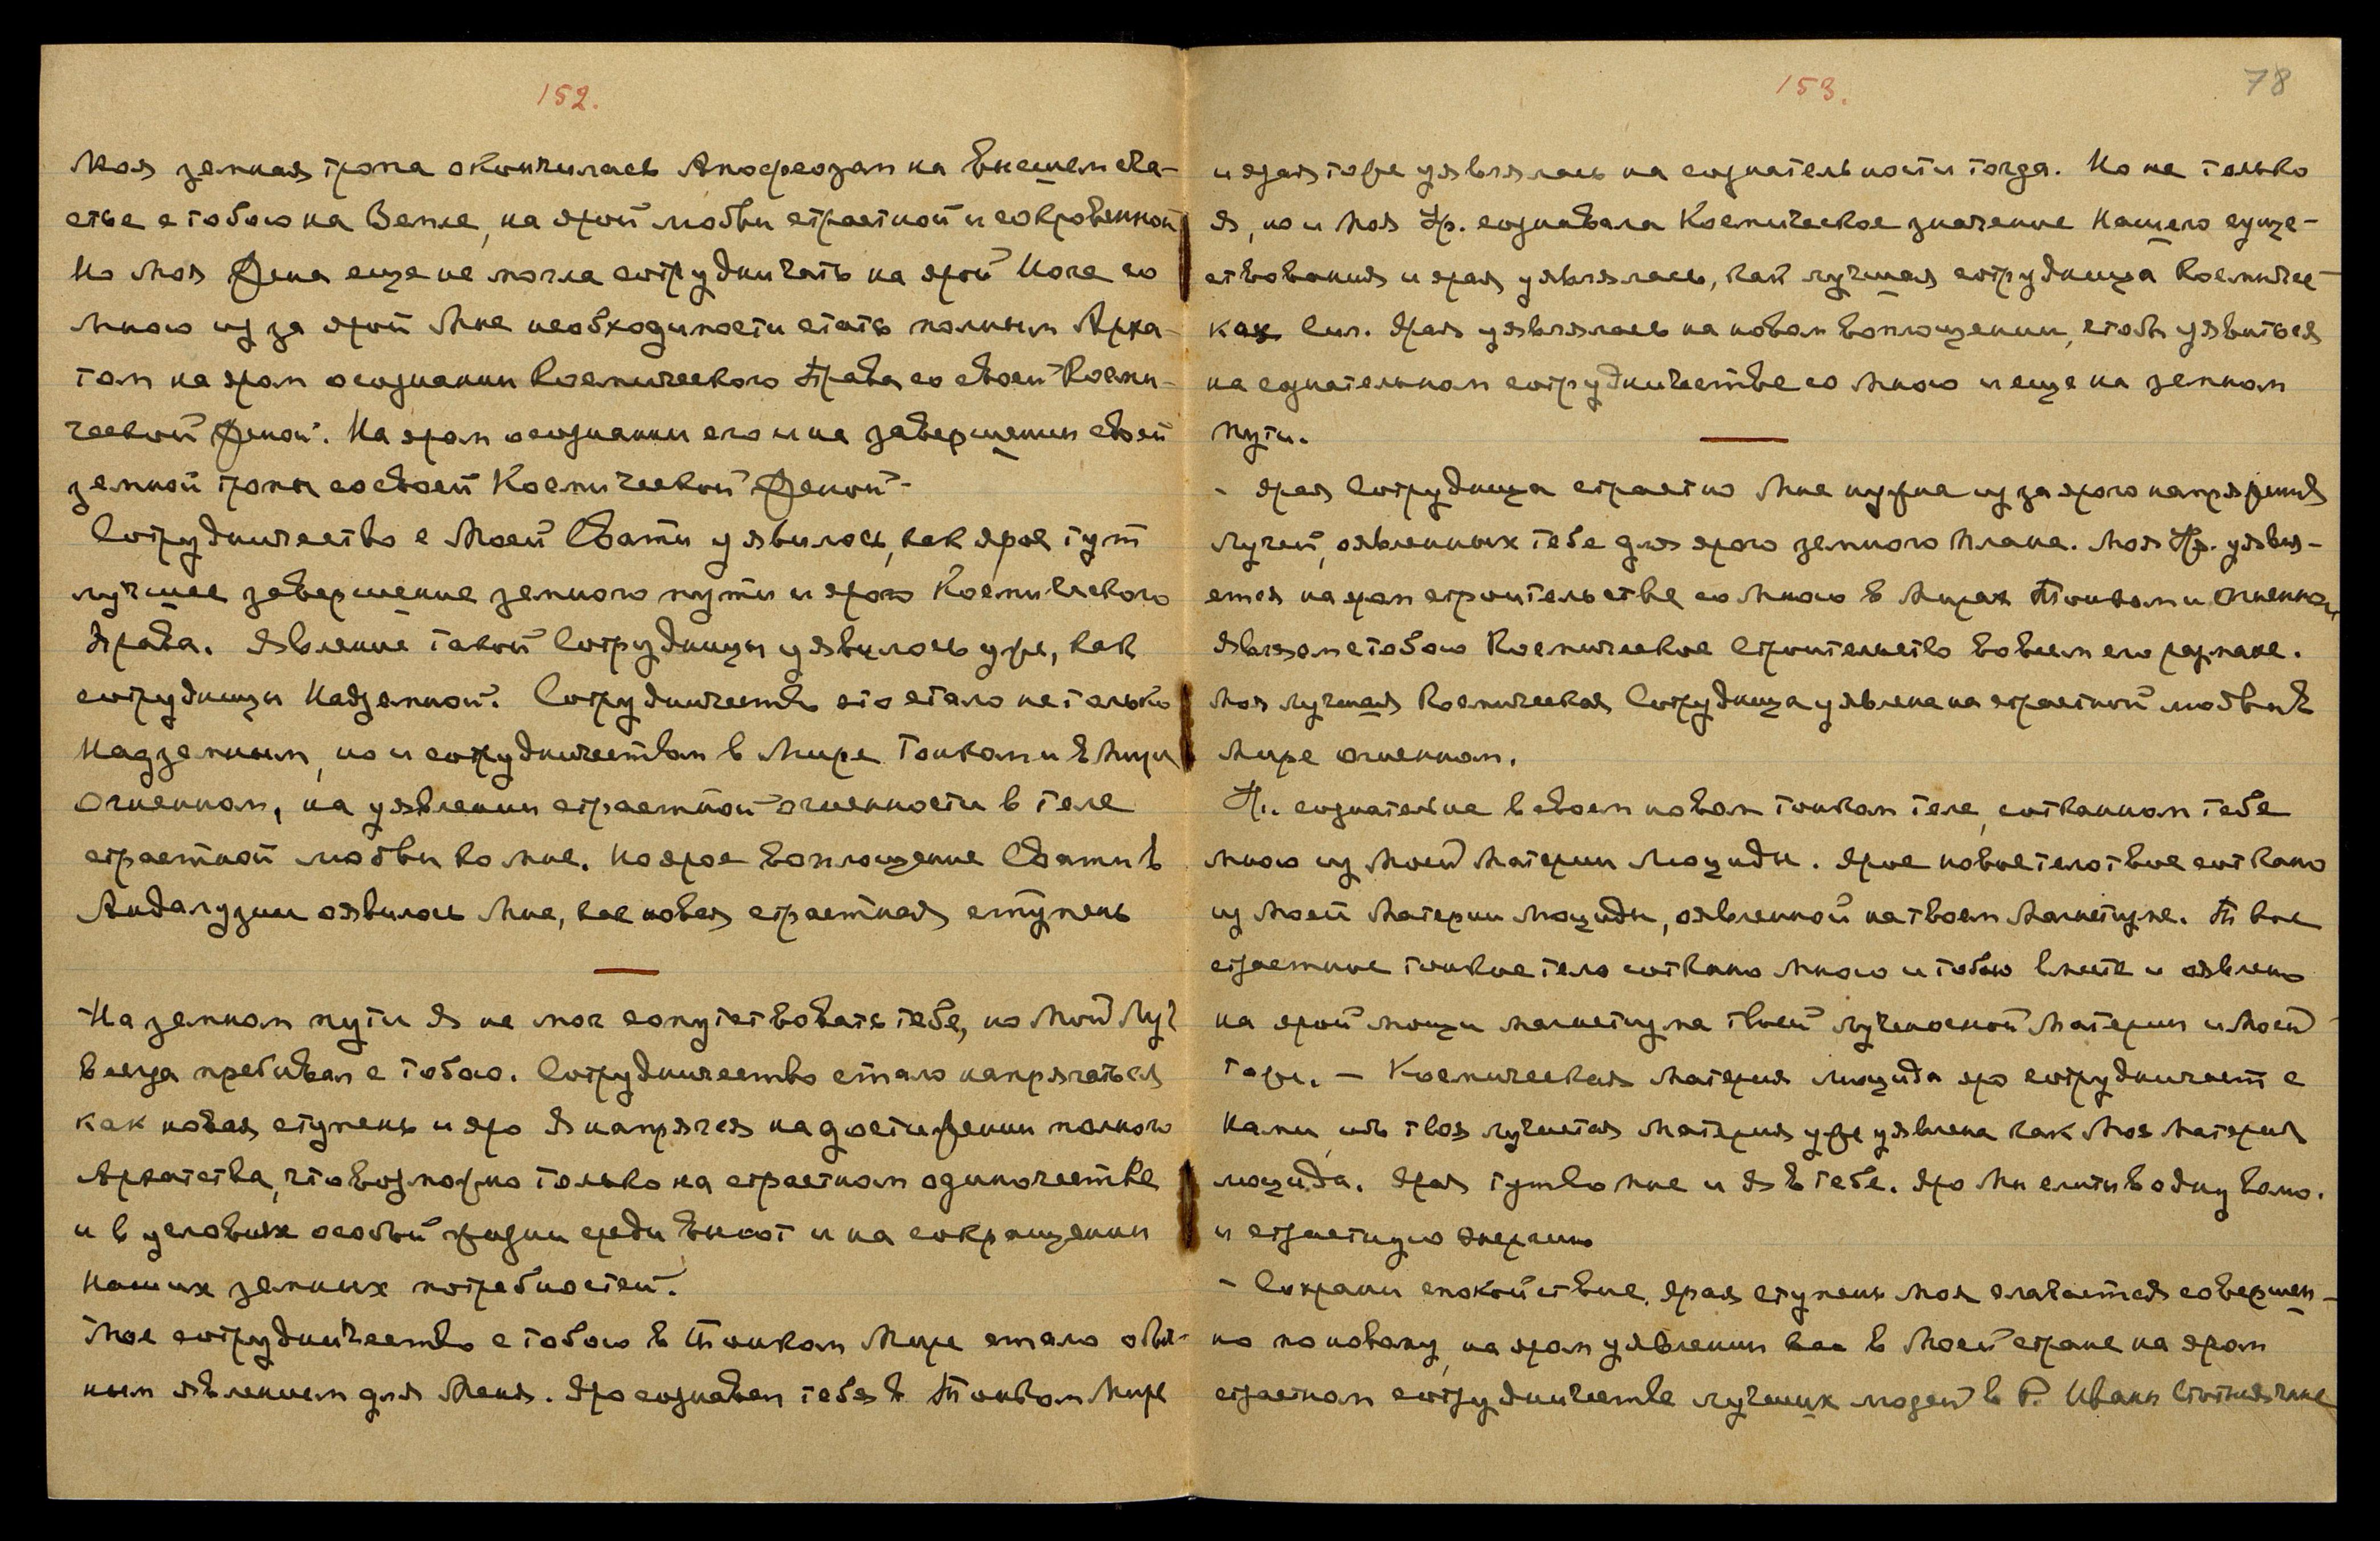 152.
Моя земная тропа окончилась Апофеозом на Высшем сча-
стье с тобою на Земле, на ярой любви страстной и сокровенной
Но Моя Жена еще не могла сотрудничать на ярой Ноте со
Мною из за ярой Мне необходимости стать полным Арха-
том на яром осознании Космического Права со своей Косми-
ческой Женой. На яром осознании его и на завершении своей
земной тропы со своей Космической Женой.
Сотрудничество с Моей Свати уявилось, как ярое тут
лучшее завершение земного пути и ярого Космического
Права. Явление такой Сотрудницы уявилось уже, как
сотрудницы Надземной. Сотрудничество это стало не только
Надземным, но и сотрудничеством в Мире Тонком и в Мире
Огненном, на уявлении страстной огненности в теле
страстной любви ко мне. Но ярое воплощение Свати в
Андалузии оявилось Мне, как новая страстная ступень
На земном пути Я не мог сопутствовать тебе, но Мой Луч
всегда пребывал с тобою. Сотрудничество стало напрягаться
как новая ступень и яро Я напрягся на достижении полного
Архатства, что возможно только на страстном одиночестве
и в условиях особой жизни среди высот и на сокращении
наших земных потребностей.
Мое сотрудничество с тобою в Тонком Мире стало обыч-
ным явлением для Меня. Яро сознавал тебя в Тонком Мире
153.
78
и ярая тоже уявлялась на сознательности тогда. Но не только
Я, но и Моя Ур. сознавала Космическое значение Нашего суще-
ствования и ярая уявлялась, как лучшая сотрудница Космичес-
ких Сил. Ярая уявлялась на новом воплощении, чтобы уявиться
на сознательном сотрудничестве со Мною и еще на земном
пути.
- Ярая Сотрудница страстно Мне нужна из за ярого напряжения
Лучей, оявленных тебе для ярого земного плана. Моя Ур. уявля-
ется на яром строительстве со Мною в Мирах Тонком и Огненном,
Являем с тобою Космическое Строительство во всем его размахе.
Моя лучшая Космическая Сотрудница уявлена на страстной любви в
Мире Огненном.
Ур. сознательна в своем новом тонком теле, сотканном тебе
Мною из Моей Материи Люциды. Ярое новое тело твое соткано
из Моей Материи Люциды, оявленной на твоем Магнетизме. Твое
страстное тонкое тело соткано Мною и тобою вместе и оявлено
на ярой мощи магнетизма твоей лученосной Материи и Моей
тоже. - Космическая Материя Люцида яро сотрудничает с
Нами, ибо твоя лучистая Материя уже уявлена как Моя Материя
Люцида. Ярая тут во Мне и Я в тебе. Яро Мы слиты в одну волю.
и страстную энергию
- Сохрани спокойствие. Ярая ступень Моя слагается совершен-
но по новому, на яром уявлении вас в Моей стране на яром
страстном сотрудничестве лучших людей в Р. Иваны